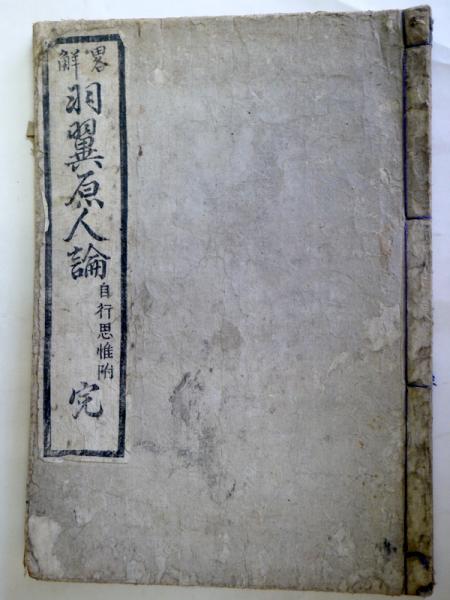 畧解
羽翼原人論
自行思惟附
完